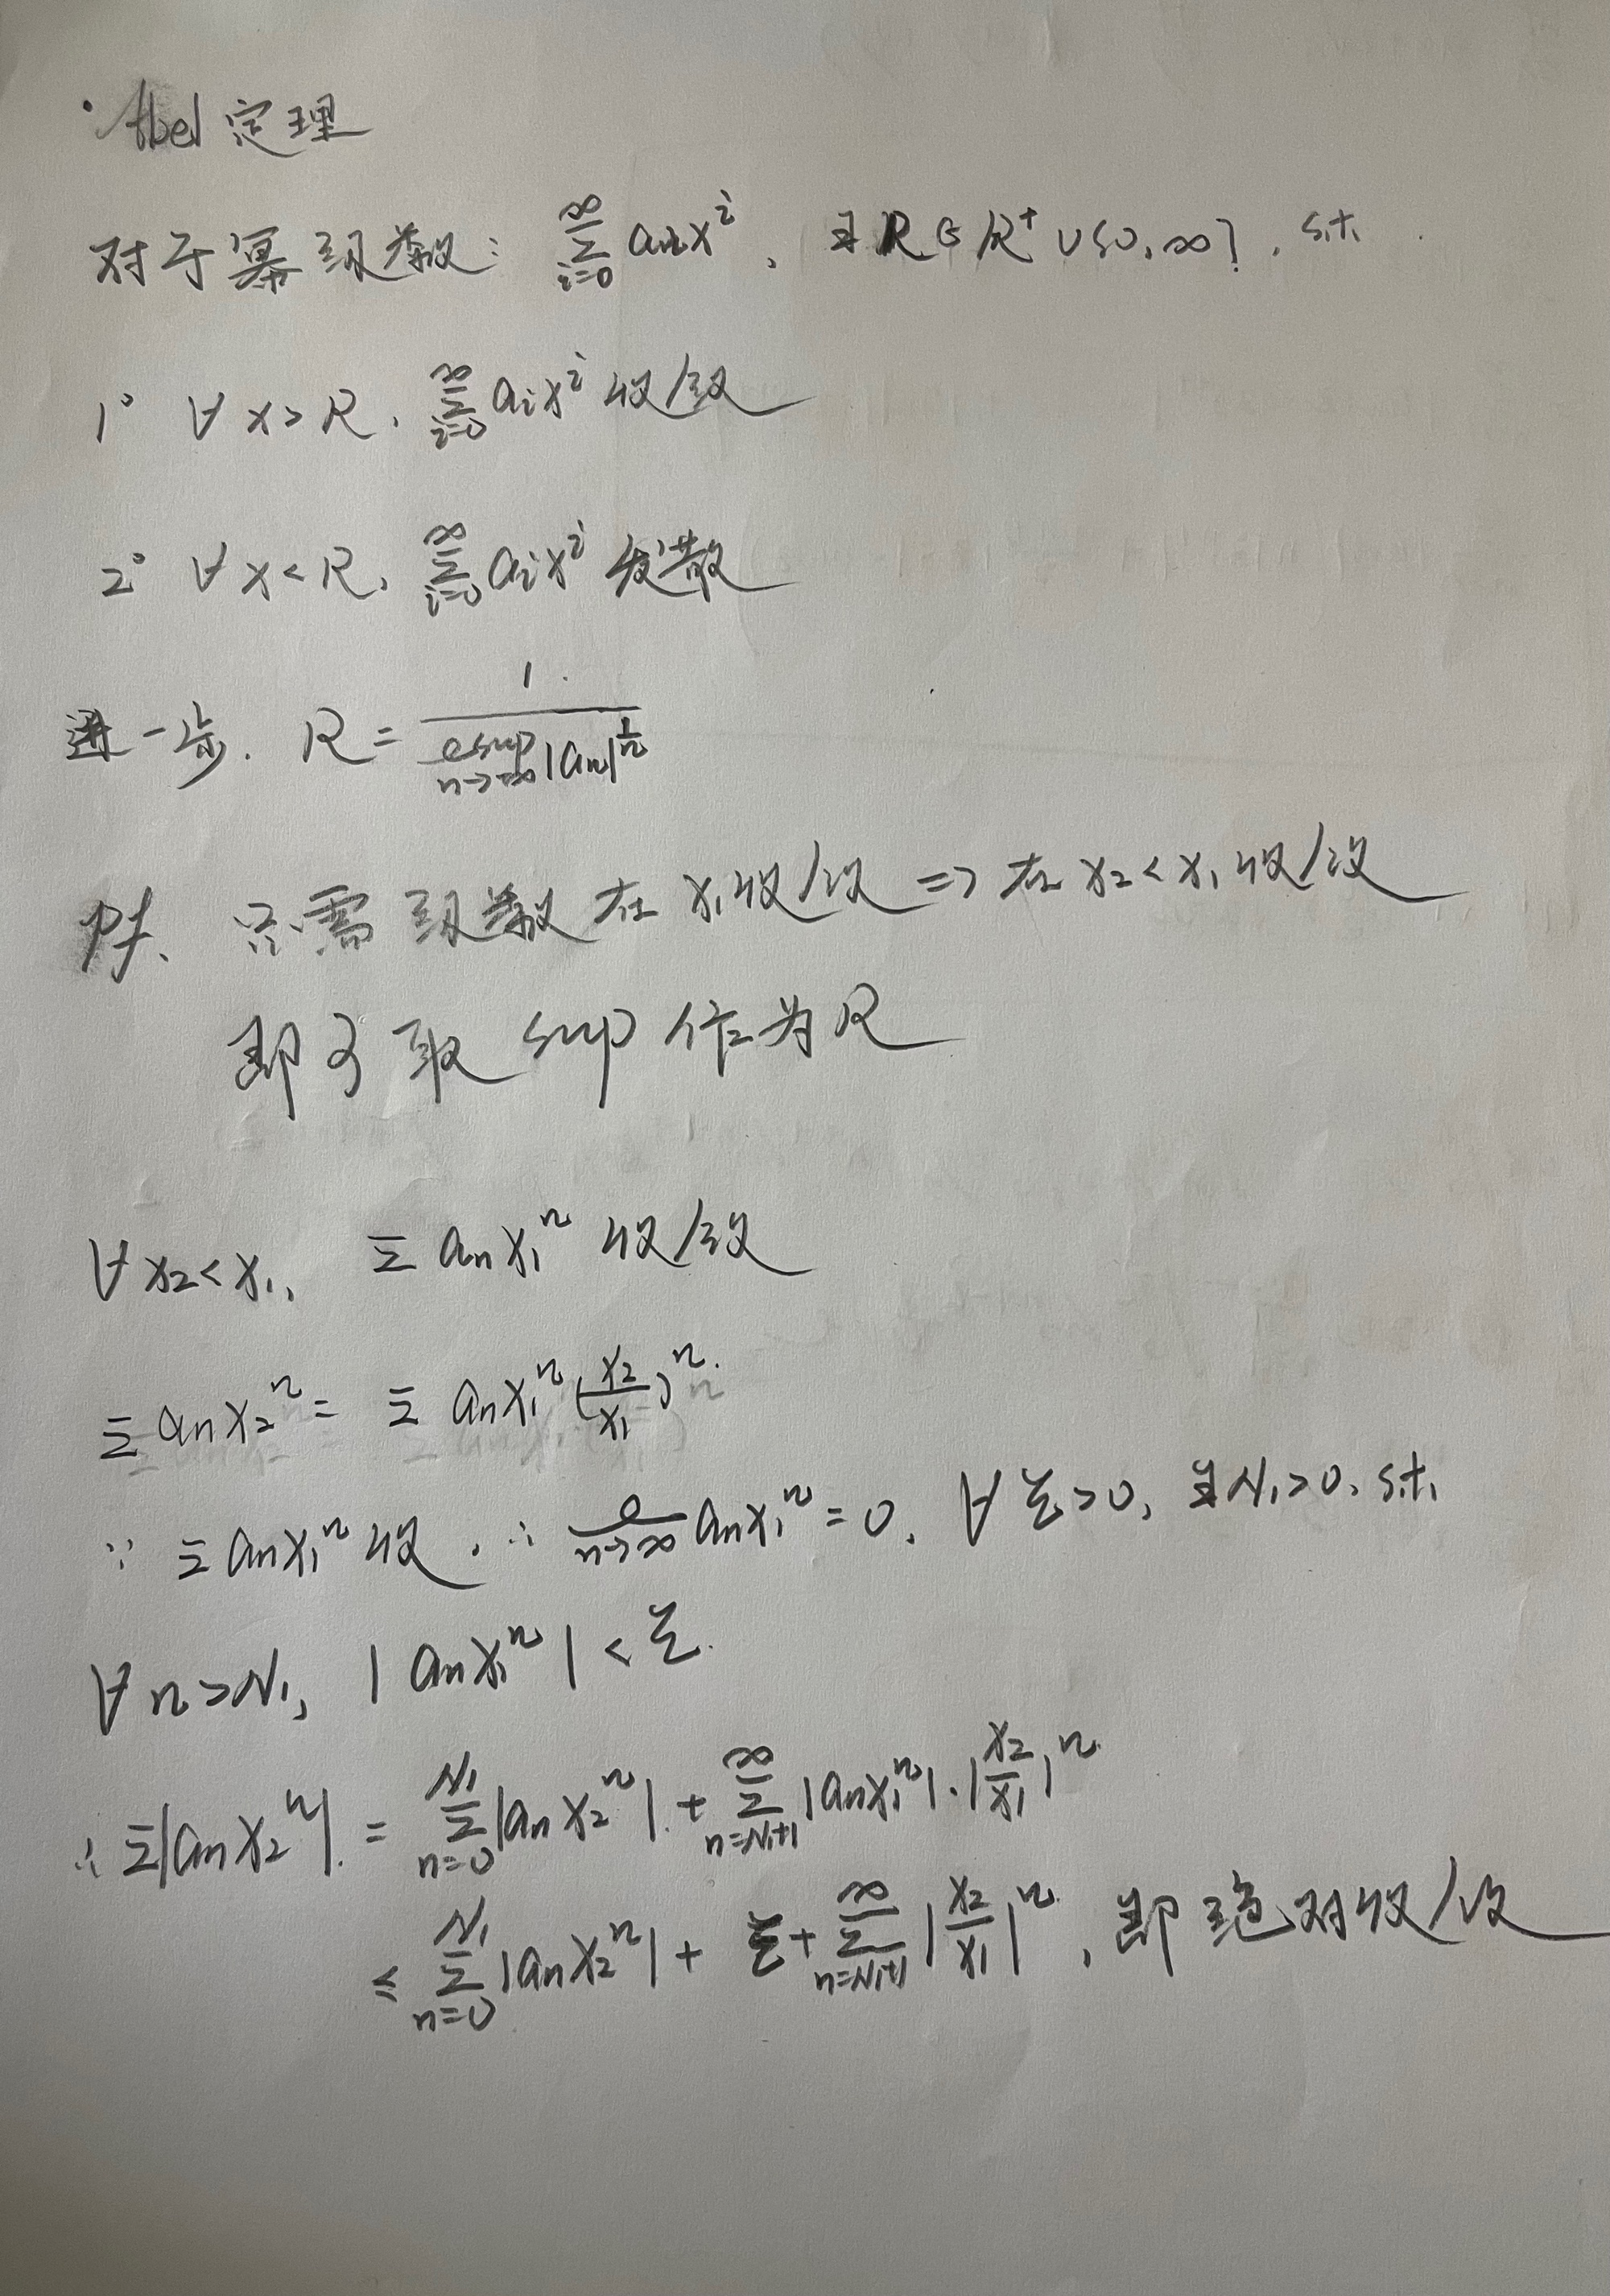 · Abel 定理
对于幂级数: ∑_{i=0}^{∞} aₙx^i, ∃ R ∈ R⁺ ∪ {0, ∞}, s.t.
1° ∀ x > R, ∑_{i=0}^{∞} a_i x^i 收敛
2° ∀ x < R, ∑_{i=0}^{∞} a_i x^i 发散
进一步. R = 1 / (lsup_{n→∞} |aₙ|^{1/n})
Pf. 只需级数在 x₁ 收敛 => 在 x₂ < x₁ 收敛
即可取 sup 作为 R
∀ x₂ < x₁, ∑ aₙx₁ⁿ 收敛
∑ aₙx₂ⁿ = ∑ aₙx₁ⁿ (x₂/x₁)ⁿ.
∵ ∑ aₙx₁ⁿ 收. ∴ l_{n→∞} aₙx₁ⁿ = 0. ∀ ξ > 0, ∃ N₁ > 0, s.t.
∀ n > N₁, |aₙx₁ⁿ| < ξ.
∴ ∑|aₙx₂ⁿ| = ∑_{n=0}^{N₁} |aₙx₂ⁿ| + ∑_{n=N₁+1}^{∞} |aₙx₁ⁿ| · |x₂/x₁|ⁿ
≤ ∑_{n=0}^{N₁} |aₙx₂ⁿ| + ξ + ∑_{n=N₁+1}^{∞} |x₂/x₁|ⁿ, 即绝对收敛